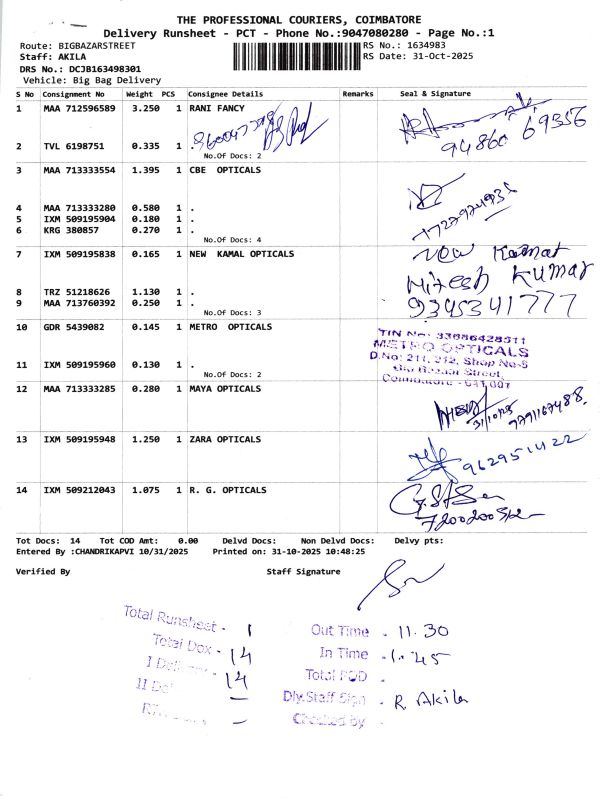 THE PROFESSIONAL COURIERS, COIMBATORE
Delivery Runsheet - PCT - Phone No.:9047080280 - Page No.:1
Route: BIGBAZARSTREET RS No.: 1634983
Staff: AKILA RS Date: 31-Oct-2025
DRS No.: DCJB163498301
Vehicle: Big Bag Delivery
S No Consignment No Weight PCS Consignee Details Remarks Seal & Signature
1 MAA 712596589 3.250 1 RANI FANCY
94860 69356
2 TVL 6198751 0.335 1 .
No.Of Docs: 2
3 MAA 713333554 1.395 1 CBE OPTICALS
4 MAA 713333280 0.580 1 .
5 IXM 509195904 0.180 1 .
6 KRG 380857 0.270 1 .
No.Of Docs: 4
7 IXM 509195838 0.165 1 NEW KAMAL OPTICALS
Kamat
Hitesh Kumar
8 TRZ 51218626 1.130 1 .
9 MAA 713760392 0.250 1 .
9345341777
No.Of Docs: 3
10 GDR 5439082 0.145 1 METRO OPTICALS
TIN No: 33686428511
METRO OPTICALS
D.No: 211, 212, Shop No-5
11 IXM 509195960 0.130 1 .
Big Bazaar Street,
No.Of Docs: 2
Coimbatore - 641 001
12 MAA 713333285 0.280 1 MAYA OPTICALS
31/10/25 7791167488
13 IXM 509195948 1.250 1 ZARA OPTICALS
9629514122
14 IXM 509212043 1.075 1 R. G. OPTICALS
Tot Docs: 14 Tot COD Amt: 0.00 Delvd Docs: Non Delvd Docs: Delvy pts:
Entered By :CHANDRIKAPVI 10/31/2025 Printed on: 31-10-2025 10:48:25
Verified By Staff Signature
Total Runsheet - 1 Out Time - 11.30
Total Dox - 14 In Time - 1.45
I Delivery - 14 Total POD -
Dly.Staff Sign - R. Akila
Checked by -